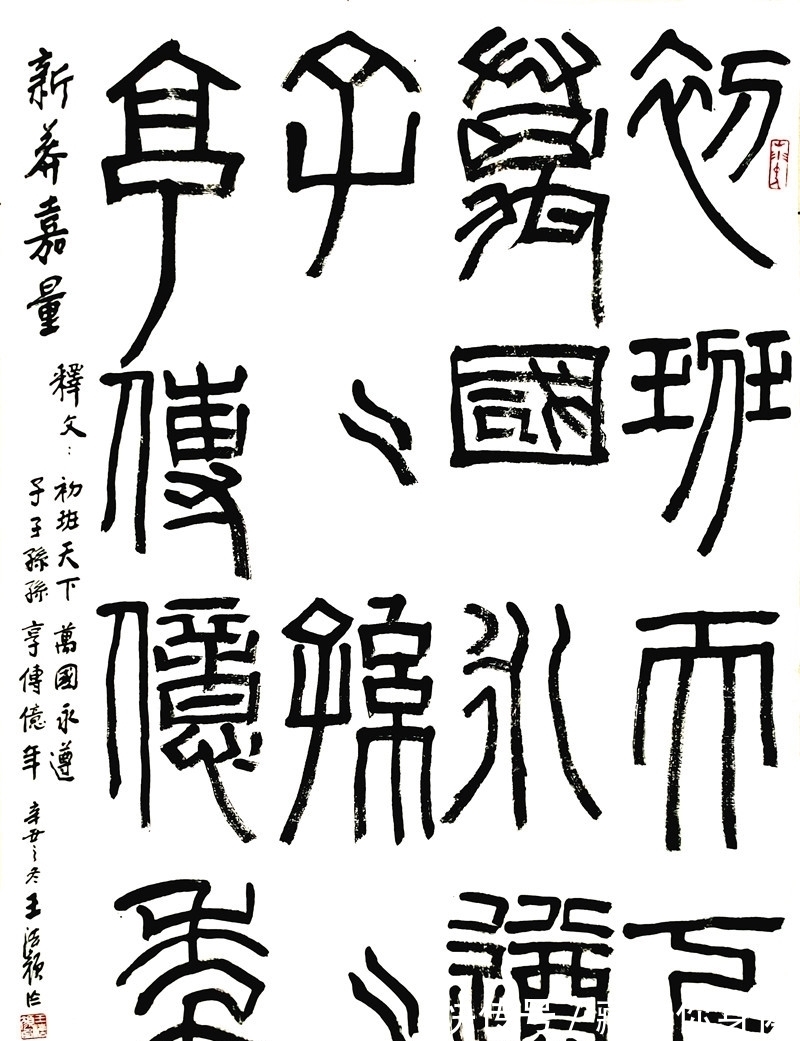 初班天下
萬國永遵
子〻孫〻
享傳億年
新莽嘉量
釋文：初班天下 萬國永遵
子子孫孫 享傳億年 辛丑之冬 王
快传号 /